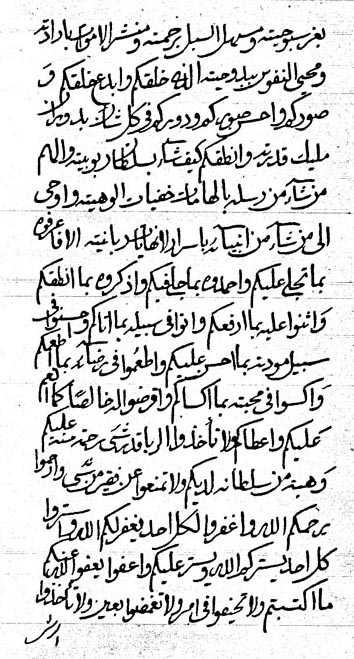 بعز سبوحيته ومسهل السبل برحمته ومنشر الاموات بارادته
ومحيي النفوس بيد وحيته الذي خلقكم وابدع خلقكم و
صوركم واحسن صوركم ودوركم في كل شان
مليك قدرته وانطقكم كيف شاء بسلطان ربوبيته والهم
من شاء من رسله بالهامات خفيات الوهيته واوحى
الى من شاء من انبيائه باسرار الانهايات ربانيته الا فاعرفوه
بما تجلى عليكم واحمدوه بما جلا فيكم واذكروه بما انطقكم
واثنوا عليه بما ارفعكم وانوا في سبيله بما اتاكم
سبيل مودته بما احسن عليكم واطعموا في رضائه بما اطعمكم
واكسوا في محبته بما اكساكم واقرضوا لله خالصا كما انعم
عليكم واعطاكم ولا تأخذوا الربا قد رشى رحمة منه عليكم
وهيبة من سلطانه لديكم ولا تمنعوا عن فقير من شيء وارحموا
يرحمكم الله واغفروا لكل احد يغفر لكم الله واستروا
كل احد يستركم الله ويستر عليكم واعفوا يعفوا الله عنكم
ما اكتسبتم ولا تحيفوا في امر ولا تغمضوا بعين ولا تأخذوا